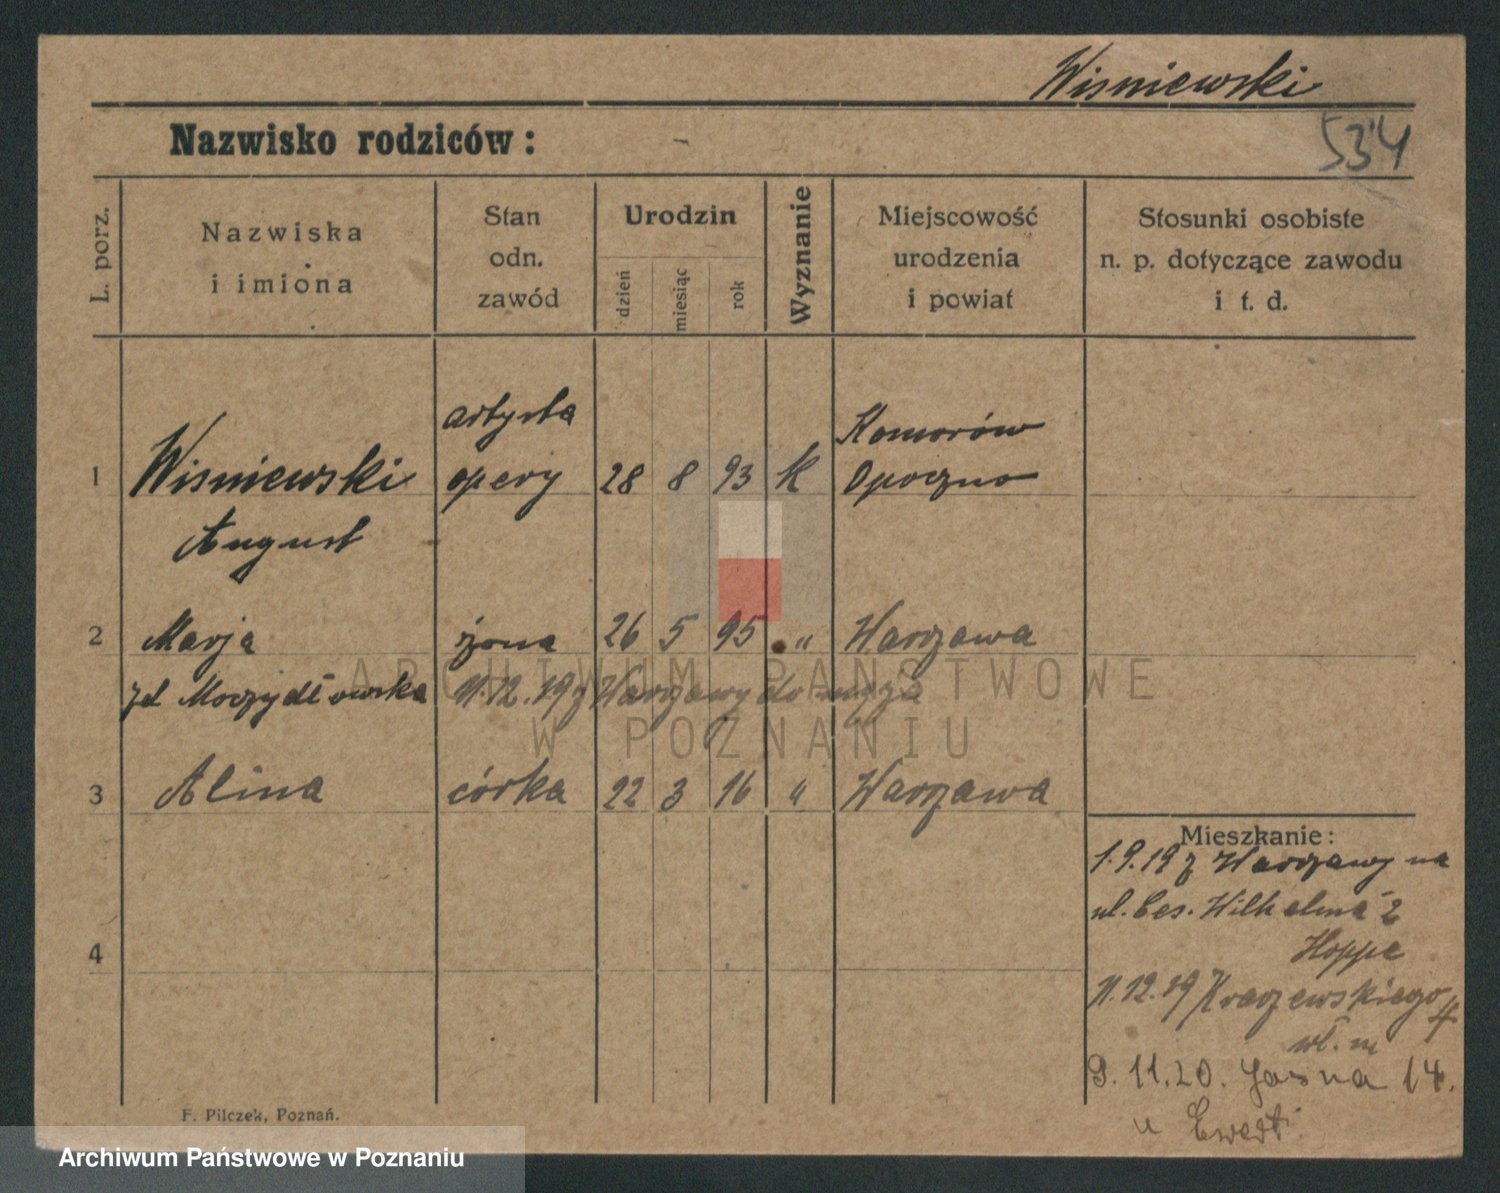 Wisniewski
534
Nazwisko rodziców: -
L. porz.
Nazwiska
i imiona
Stan
odn.
zawód
Urodzin
dzień
miesiąc
rok
Wyznanie
Miejscowość
urodzenia
i powiat
Stosunki osobiste
n. p. dotyczące zawodu
i t. d.
artysta
Komorów
1 Wisniewski opery 28 8 93 k Opoczno
August
2 Marja żona 26 5 95 " Warszawa
zd Moczydłowska 11.12.19 z Warszawy do męża
3 Alina córka 22 3 16 " Warszawa
Mieszkanie:
1.9.19 z Warszawy na
ul. Ces. Wilhelma 2
Hoppe
4
11.12.19 Kraszewskiego 4
wł. m
9.11.20. Jasna 14.
u Ewert
F. Pilczek, Poznań.
ARCHIWUM PAŃSTWOWE
W POZNANIU
Archiwum Państwowe w Poznaniu